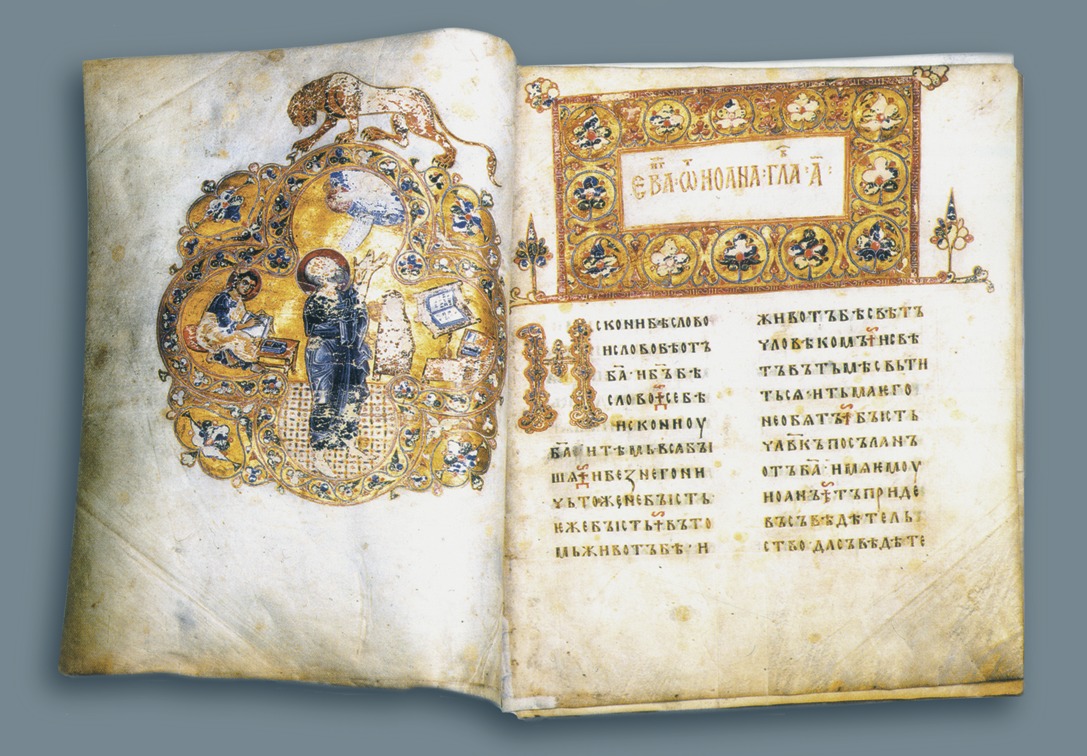 ЄВА · Ѡ ИОАНА · ГЛА · А҃ :
ИСКОНИ БѢ СЛОВО
И СЛОВО БѢ ОТЪ
Б҃А · И Б҃Ъ БѢ
СЛОВО · СЕ БѢ
ИСКОНИ ОУ
Б҃А И ТѢМЬ ВЬСА БЫ
ШѦ · И БЕЗ НЕГО НИ
ЧЬТОЖЕ НЕ БЫСТЬ
ЕЖЕ БЫСТЬ · ВЪ ТО
МЬ ЖИВОТЪ БѢ · И
ЖИВОТЪ БѢ СВѢТЪ
ЧЛОВѢКОМЪ · И СВѢ
ТЪ ВЪ ТЬМѢ СВЬТИ
ТЬСѦ · И ТЬМА ЕГО
НЕ ОБѦТЪ · БЫСТЬ
ЧЛ҃ВКЪ ПОСЪЛАНЪ
ОТЪ Б҃А · ИМѦ ЕМОУ
ИОАНЪ · ТЪ ПРИДЕ
ВЪ СЪВѢДѢТЕЛЬ
СТВО · ДА СЪВѢДѢТЕ